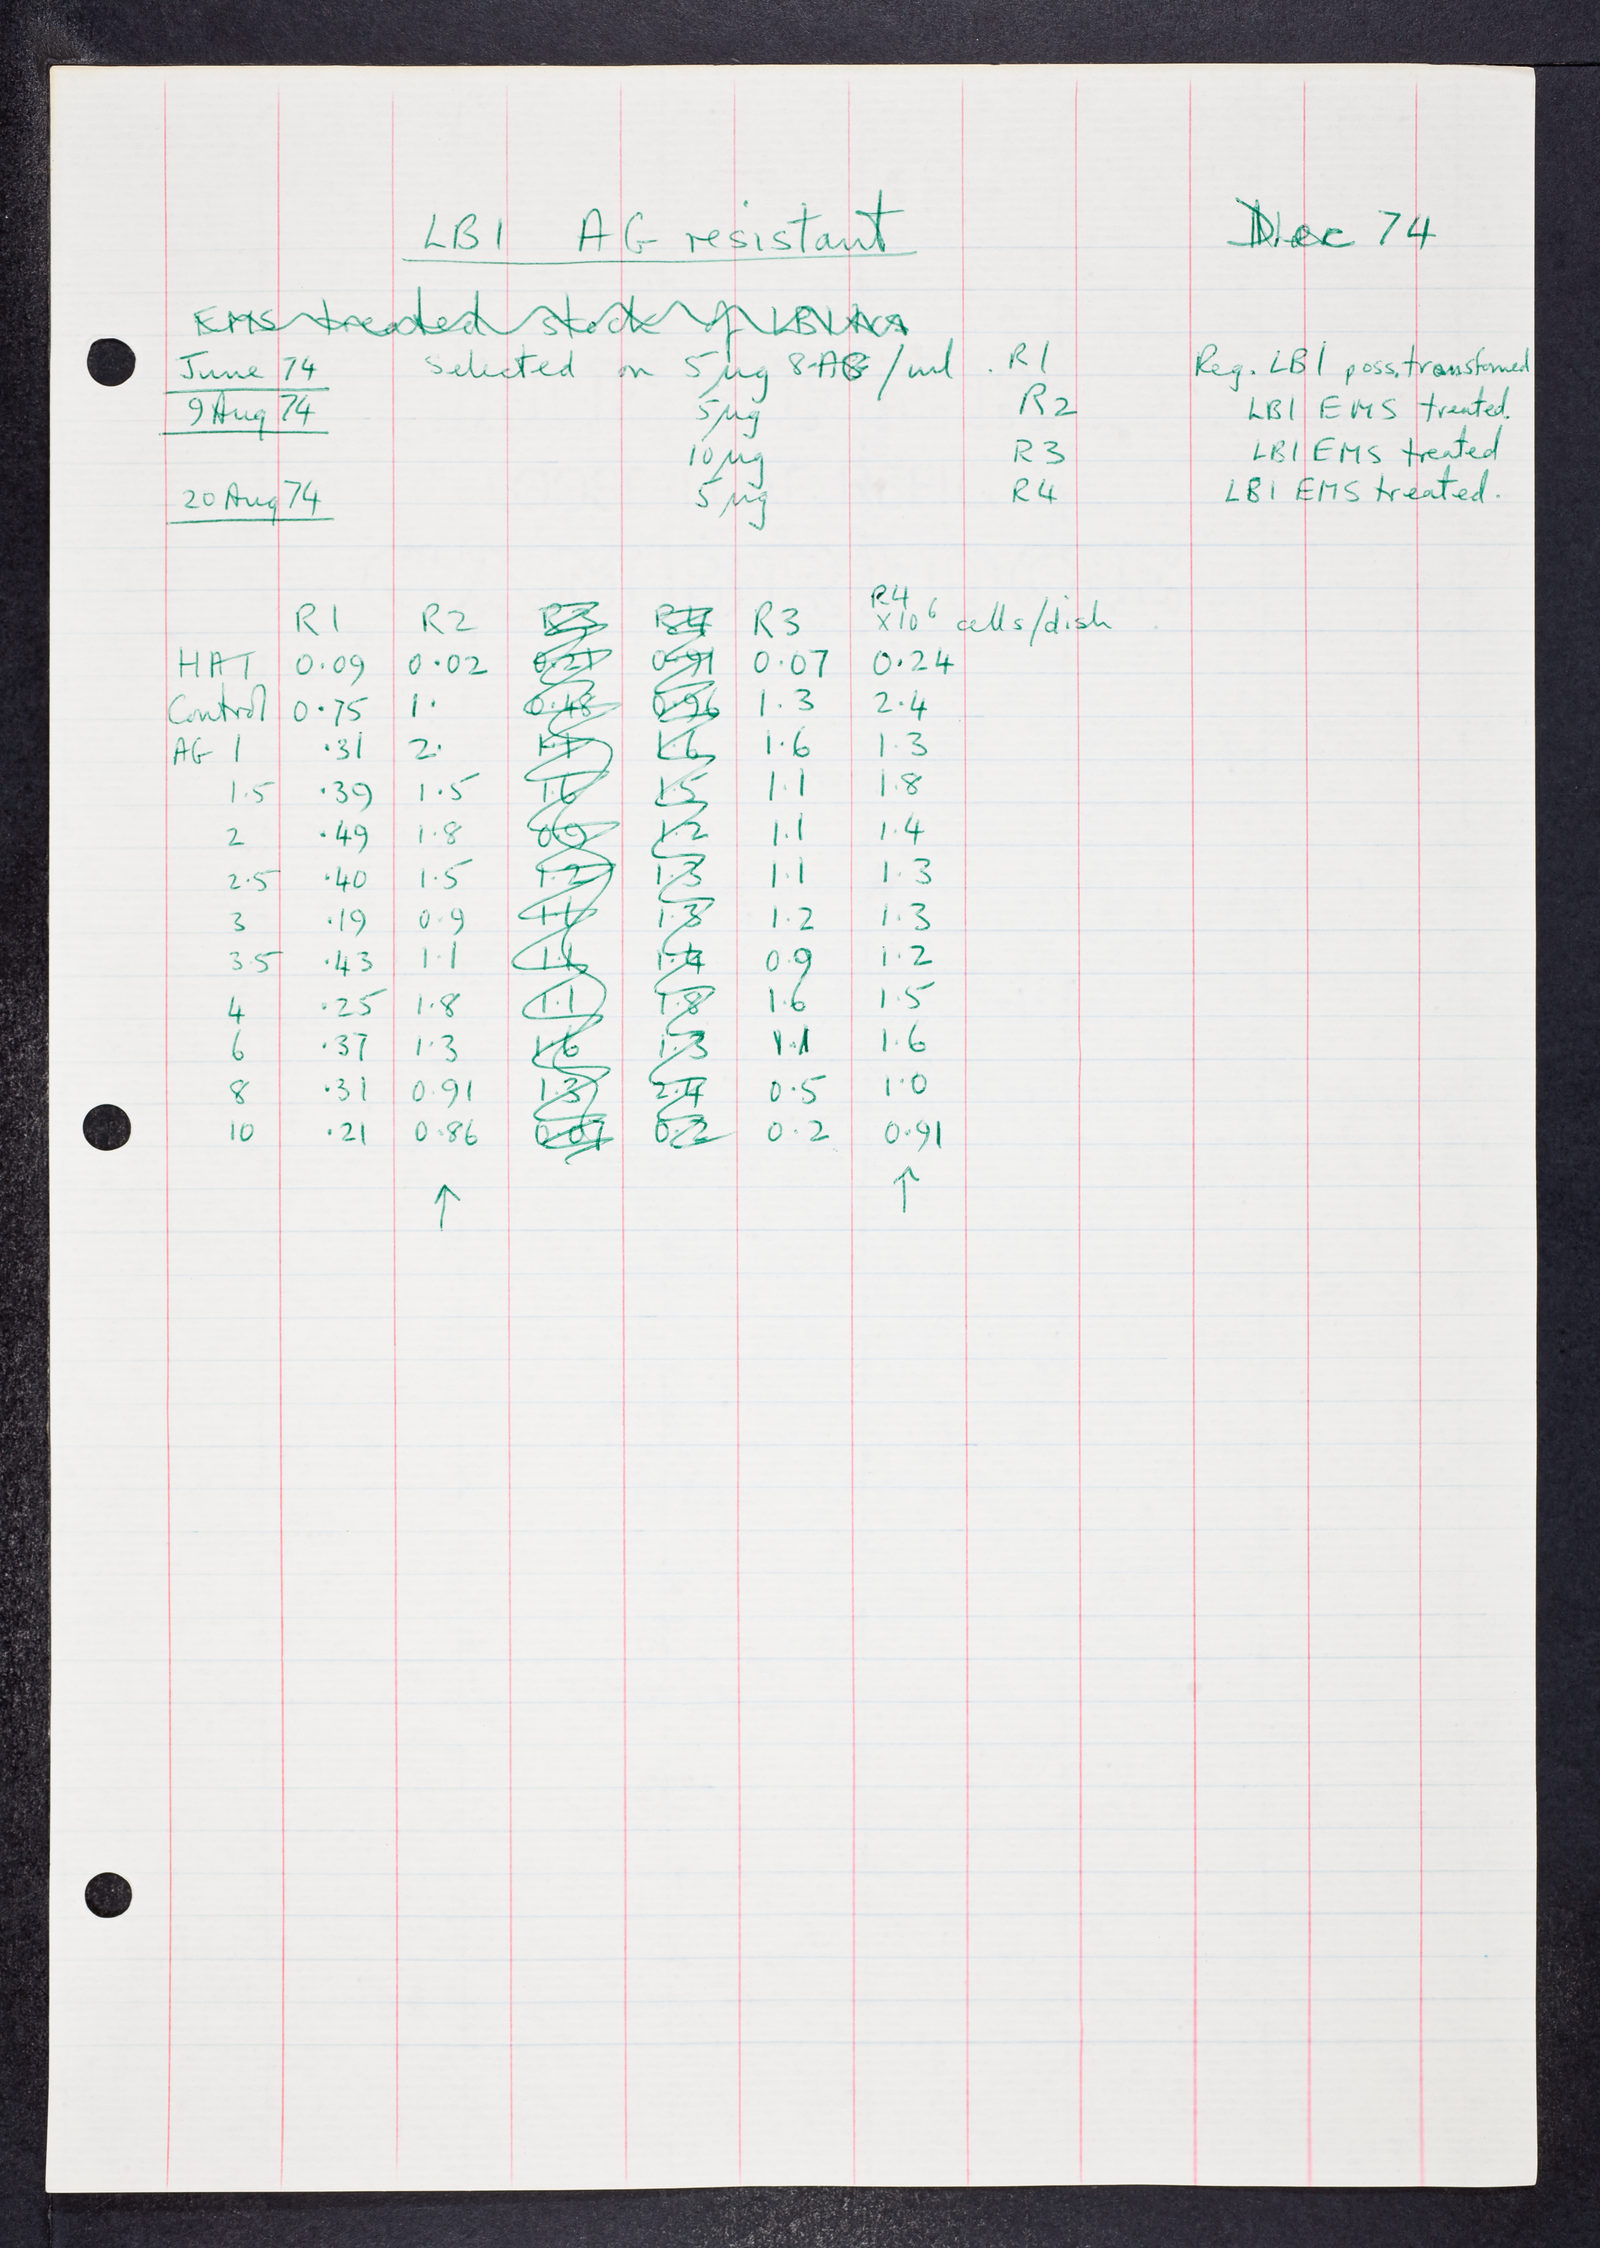 LB1 AG resistant Dec 74
EMS treated stock of LB1
June 74 selected on 5 µg 8-AG/ml. R1 Reg. LB1 poss. transformed
9 Aug 74 5 µg R2 LB1 EMS treated.
10 µg R3 LB1 EMS treated
20 Aug 74 5 µg R4 LB1 EMS treated.
R1 R2 R3 R4 R3 R4 x10⁶ cells/dish
HAT 0.09 0.02 0.21 0.91 0.07 0.24
Control 0.75 1. 0.48 0.96 1.3 2.4
AG 1 .31 2. 1.6 1.6 1.3
1.5 .39 1.5 1.6 1.5 1.1 1.8
2 .49 1.8 0.9 1.2 1.1 1.4
2.5 .40 1.5 1.2 1.3 1.1 1.3
3 .19 0.9 1.1 1.3 1.2 1.3
3.5 .43 1.1 1.4 0.9 1.2
4 .25 1.8 1.1 1.8 1.6 1.5
6 .37 1.3 1.6 1.3 1.1 1.6
8 .31 0.91 1.3 2.4 0.5 1.0
10 .21 0.86 0.07 0.2 0.2 0.91
↑ ↑